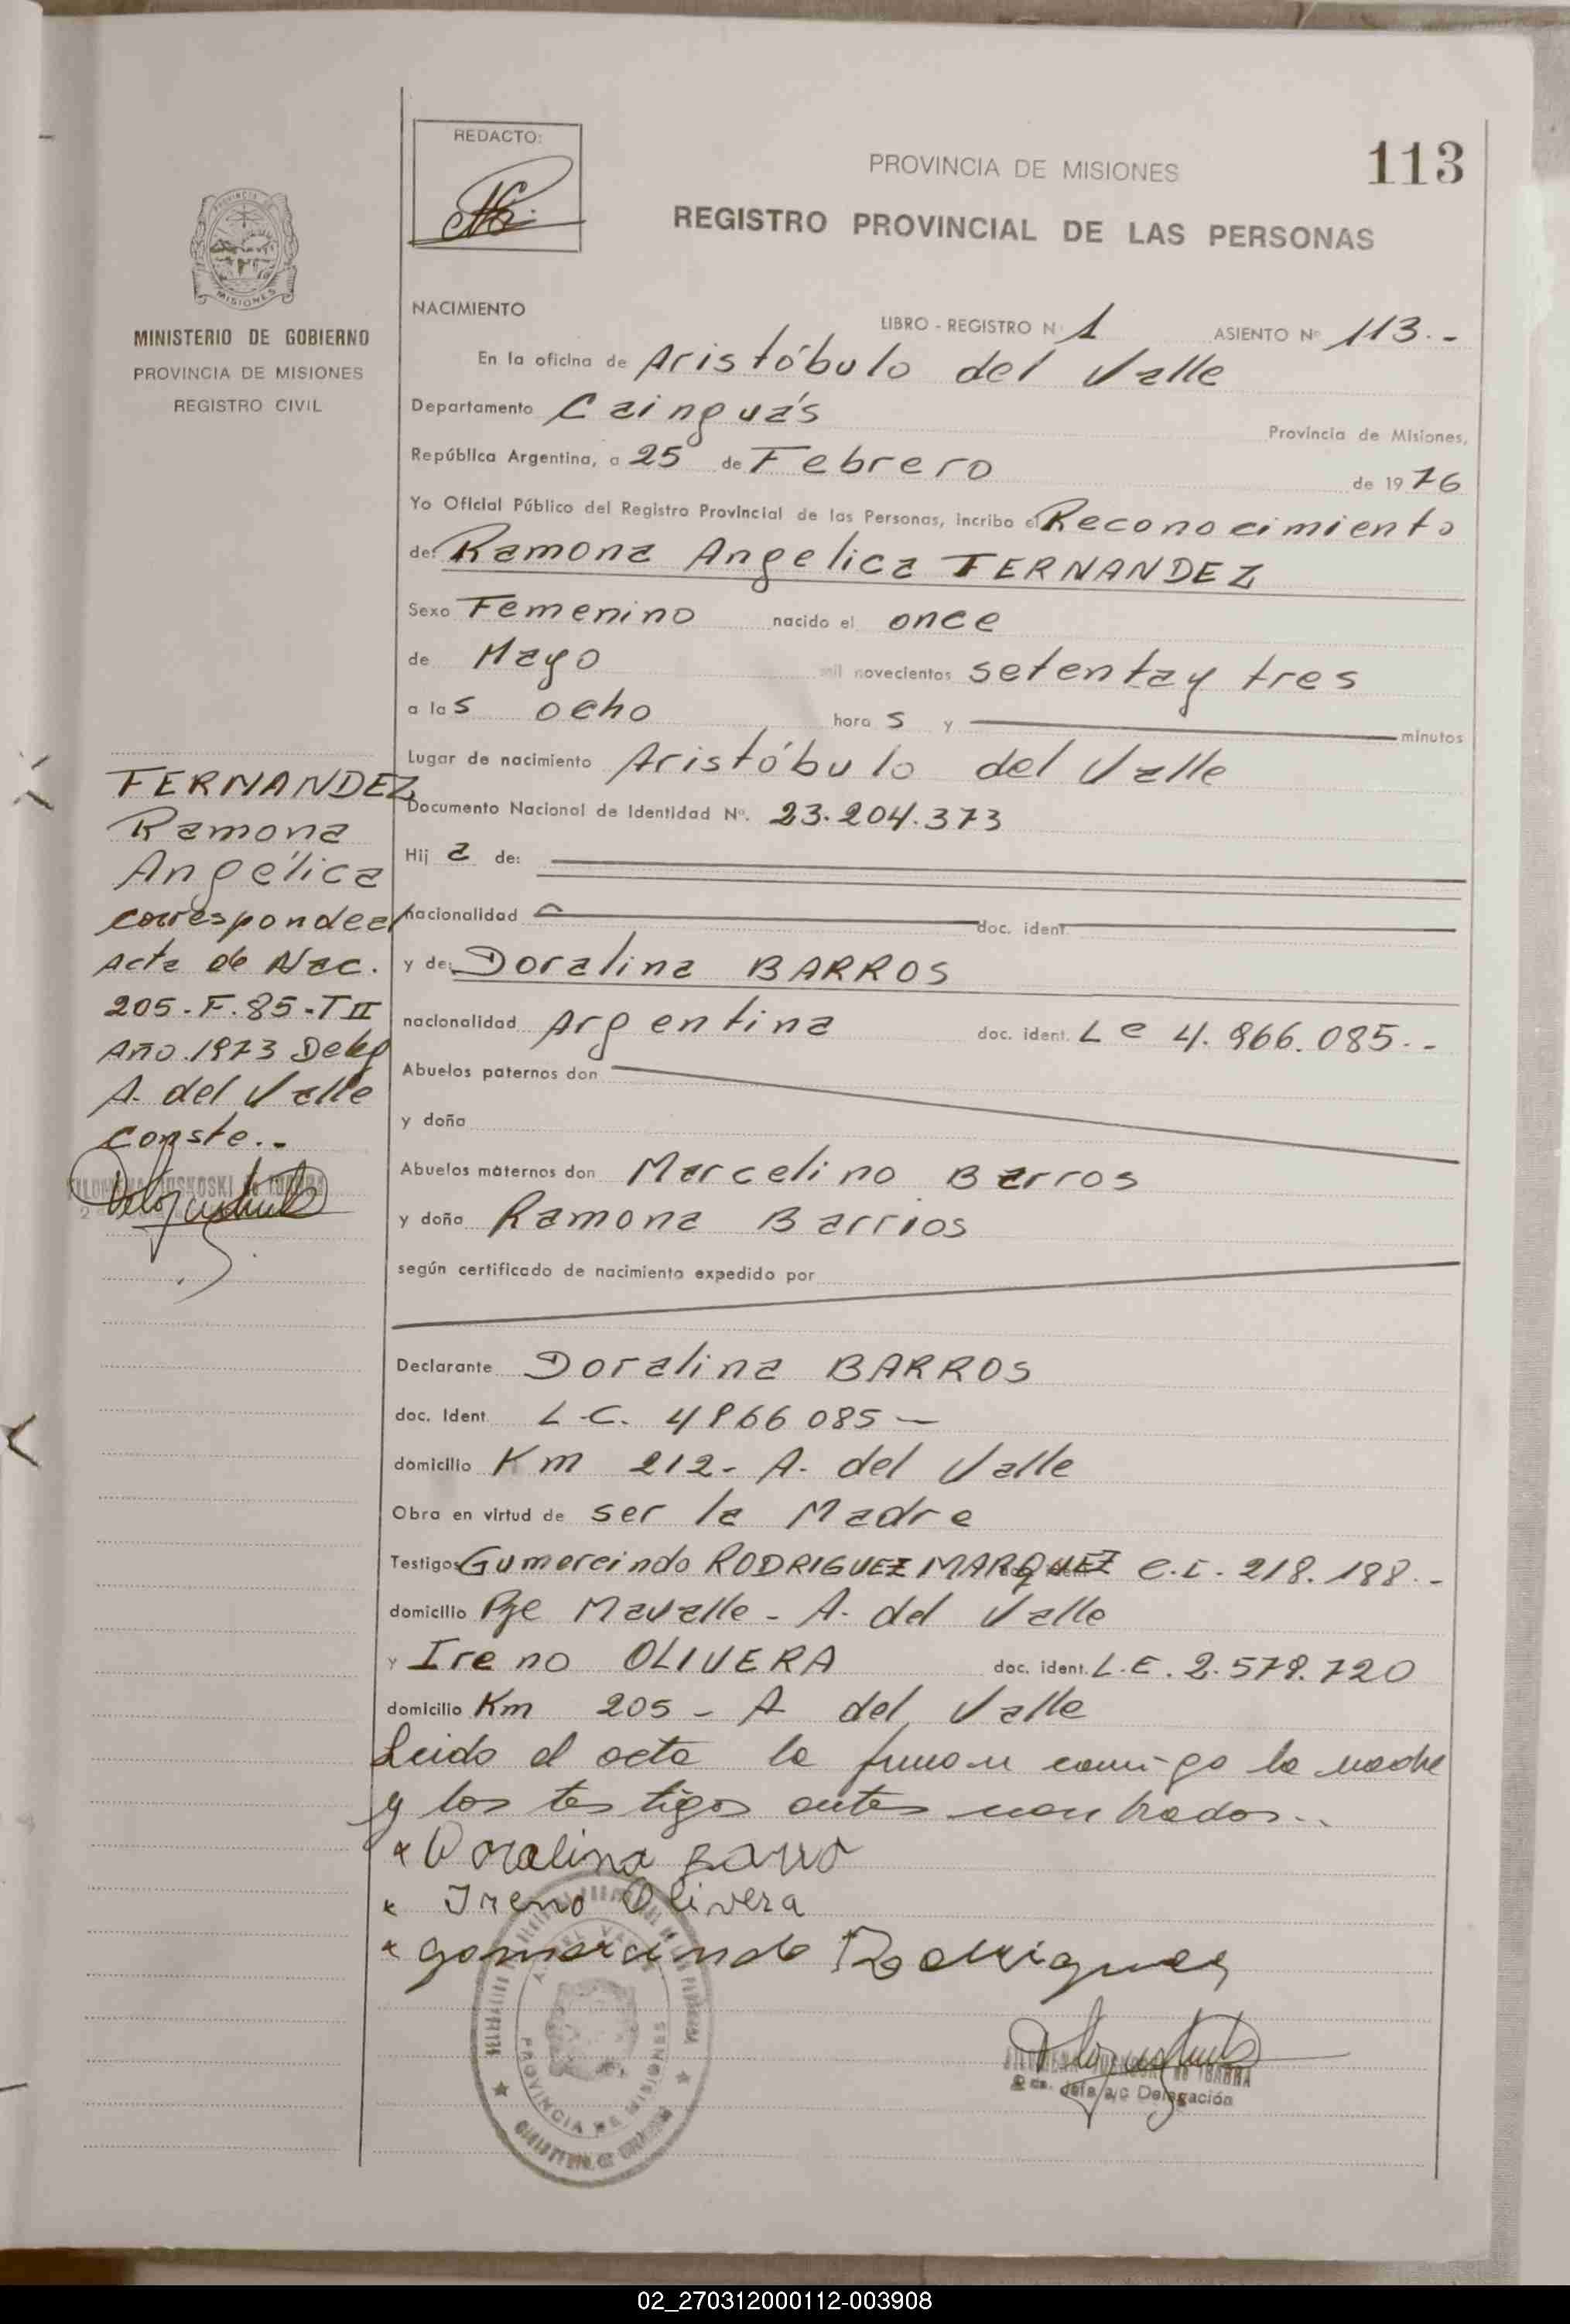 REDACTO:
PROVINCIA DE MISIONES
113
REGISTRO PROVINCIAL DE LAS PERSONAS
PROVINCIA DE
MISIONES
MINISTERIO DE GOBIERNO
PROVINCIA DE MISIONES
REGISTRO CIVIL
NACIMIENTO
LIBRO - REGISTRO Nº 1 ASIENTO Nº 113.-
En la oficina de Aristóbulo del Valle
Departamento Cainguás Provincia de Misiones,
República Argentina, a 25 de Febrero de 1976
Yo Oficial Público del Registro Provincial de las Personas, incribo el Reconocimiento
de: Ramona Angelica FERNANDEZ
Sexo Femenino nacido el once
de Mayo mil novecientos setenta y tres
a las ocho horas y minutos
Lugar de nacimiento Aristóbulo del Valle
Documento Nacional de Identidad Nº. 23.204.373
Hija de:
nacionalidad doc. ident.
y de: Doralina BARROS
nacionalidad Argentina doc. ident. L c 4.966.085.-
Abuelos paternos don
y doña
Abuelos maternos don Marcelino Barros
y doña Ramona Barrios
según certificado de nacimiento expedido por
Declarante Doralina BARROS
doc. Ident. L.C. 4966085-
domicilio Km 212- A. del Valle
Obra en virtud de ser la Madre
Testigos Gumercindo RODRIGUEZ MARQUEZ C.I. 218.188.-
domicilio Pje Mavalle - A. del Valle
y Ireno OLIVERA doc. ident. L.E. 2.579.720
domicilio Km 205 - A del Valle
Leido el acta la firman conmigo la madre
y los testigos antes nombrados.-
x Doralina Barro
x Ireno Olivera
x gomercindo Rodrigues
FERNANDEZ
Ramona
Angélica
corresponde al
acta de Nac.
205-F.85-T II
Año 1973 Deleg
A. del Valle
Conste.-
FILOMENA JUSKOSKI de IBARRA
PROVINCIA DE MISIONES
FILOMENA JUSKOSKI de IBARRA
2 da. Jefa a/c Delegación
02_270312000112-003908